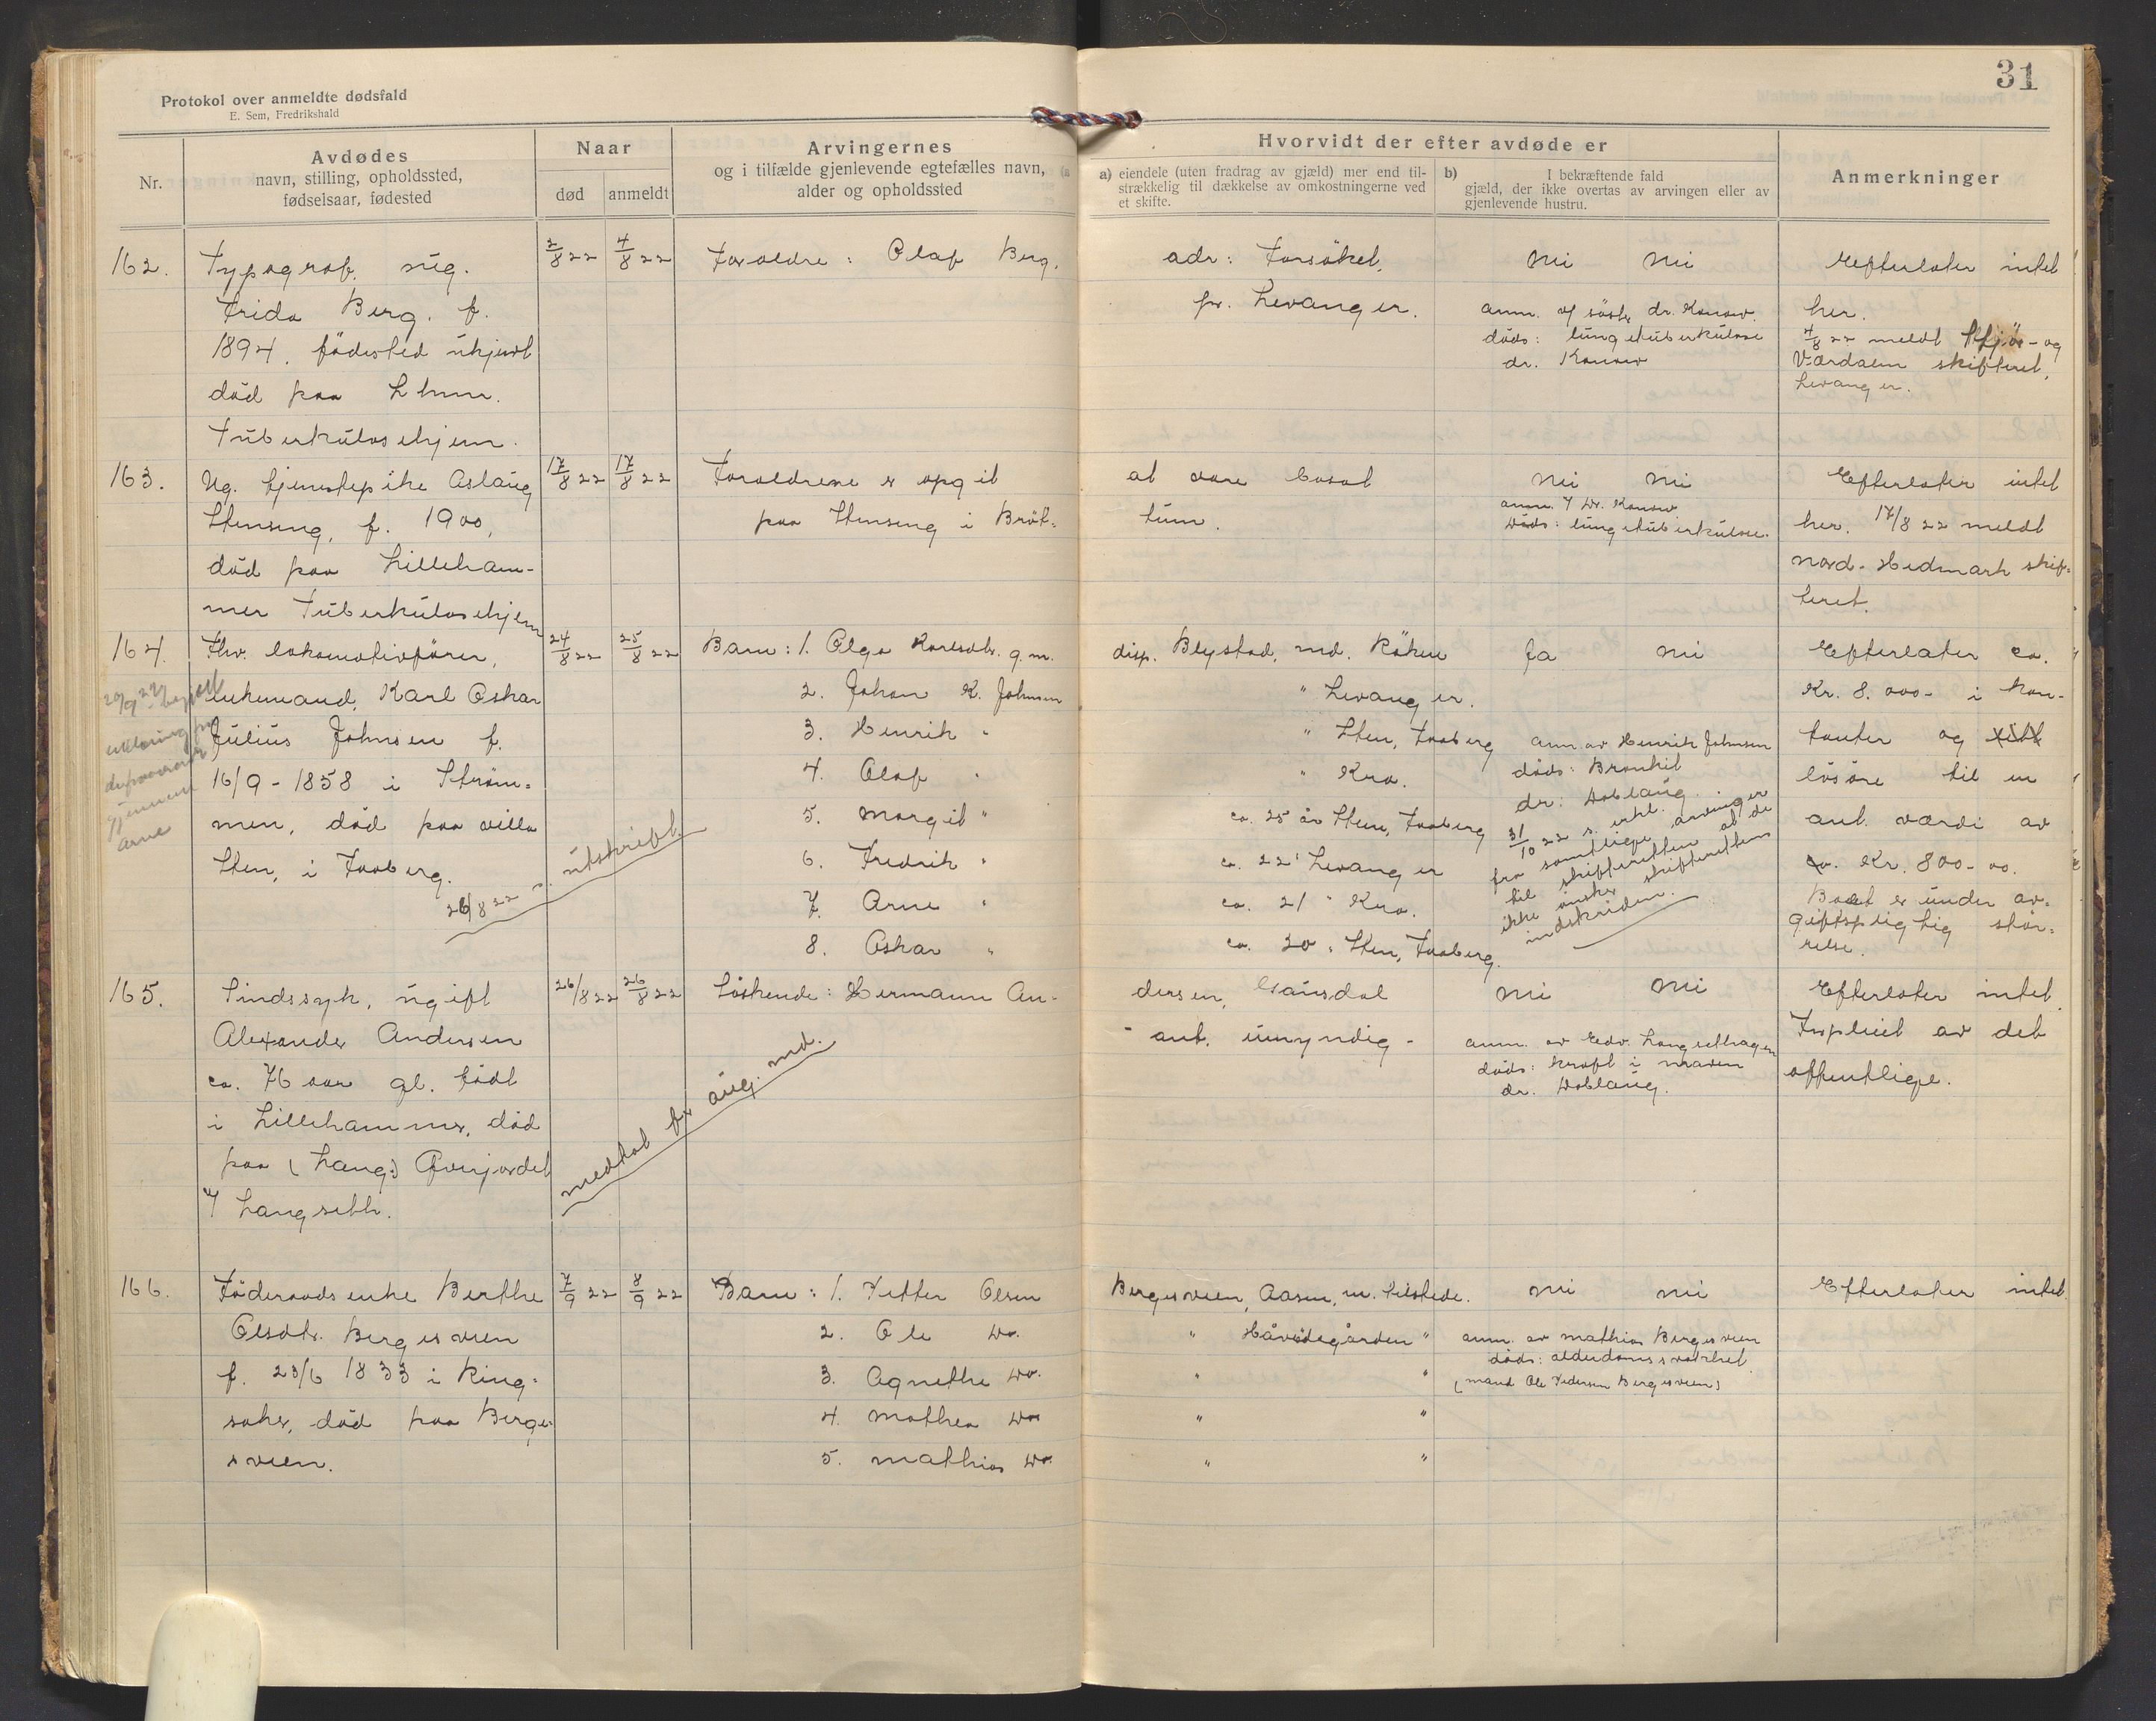 Protokol over anmeldte dødsfald
E. Sem, Fredrikshald
31
Nr.
Avdødes
navn, stilling, opholdssted,
fødselsaar, fødested
Naar
død
anmeldt
Arvingernes
og i tilfælde gjenlevende egtefælles navn,
alder og opholdssted
Hvorvidt der efter avdøde er
a) eiendele (uten fradrag av gjæld) mer end til-
strækkelig til dækkelse av omkostningerne ved
et skifte.
b) I bekræftende fald
gjæld, der ikke overtas av arvingen eller av
gjenlevende hustru.
Anmerkninger
162.
Typograf, ug.
Frida Berg. f.
1894, födested ukjent
död paa Lhmr.
Tuberkulosehjem.
2/8 22
4/8 22
Foreldre: Olaf Berg,
adr: Forsöket,
pr. Levanger.
Nei Nei
anm. v/ söster dr. Konow.
döds: lungetuberkulose
dr. Konow
Efterlater intet
her.
4/8 22 meldt Stjör- og
Værdalen skifteret,
Levanger.
163.
Ug. tjenestepike Aslaug
Stenseng, f. 1900,
död paa Lilleham-
mer Tuberkulosehjem
17/8 22
17/8 22
Foreldrene er opgit
paa Stenseng i Bröt-
at være bosat
tum.
Nei Nei
anm. v/ Dr. Konow
Döds: lungetuberkulose.
Efterlater intet
her. 17/8 22 meldt
Nord-Hedmark skif-
teret.
164.
Fhv. lokomotivförer,
enkemand, Karl Oskar
Julius Johnsen f.
16/9 - 1858 i Ström-
men, död paa villa
Sten, i Faaberg.
26/8 22 s. utskrift.
24/8 22
25/8 22
Barn: 1. Olga Karlsdtr. g.m.
2. Johan K. Johnsen
3. Henrik "
4. Olaf "
5. Margit "
6. Fredrik "
7. Arne "
8. Oskar "
disp. Blystad, md. Röken
" Levanger.
" Sten, Faaberg
" Kra.
ca. 25 år Sten, Faaberg
ca. 22 " Levanger
ca. 21 " Kra.
ca. 20 " Sten, Faaberg.
Ja Nei
anm. av Henrik Johnsen
döds: Bronkit
dr: Doblaug.
31/10 22 s. erkl.
fra samtlige arvinger
til skifteretten at de
ikke önsker skifteretten
indskriden.
Efterlater ca.
Kr. 8.000- i kon-
tanter og
lösöre til en
ant. værdi av
ca. Kr. 800-00.
Boet er under av-
giftspligtig stör-
relse.
165.
Sindssyk, ugift
Alexander Andersen
ca. 76 aar gl. födt
i Lillehammer, död
paa (Lang:) Överjordet
v/ Langseth.
26/8 22
26/8 22
Söskende: Hermann An-
dersen, Gausdal
- ant. umyndig -
medtat for aug. md.
Nei Nei
anm. av Edv. Langsethagen
döds: kræft i maven
dr. Doblaug.
Efterlater intet.
Forpleiet av det
offentlige.
166.
Föderaadsenke Berthe
Olsdtr. Bergesveen
f. 23/6 1833 i Ring-
saker, död paa Berge-
sveen.
7/9 22
8/9 22
Barn: 1. Petter Olsen
2. Ole Do.
3. Agnethe Do.
4. Mathea Do
5. Mathias Do.
Bergesveen, Aasen, m. tilstede.
" Håvedegården "
" "
" "
" "
Nei Nei
anm. av Mathias Bergesveen
döds: alderdomssvakhet
(mand Ole Pedersen Bergesveen)
Efterlater intet.